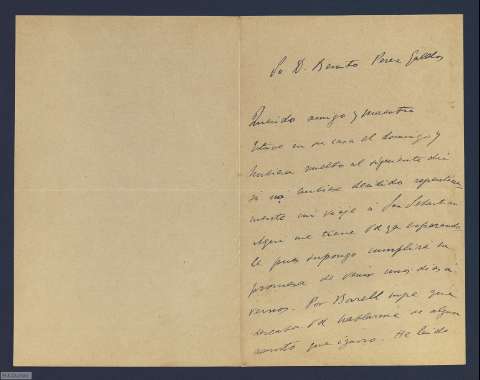 Sr D. Benito Perez Galdos
Querido amigo y maestro
Estuve en su casa el domingo y
hubiera vuelto al siguiente dia
si no hubiese decidido repentina
mente mi viaje á San Sebastian
Aqui me tiene Vd ya esperando
le pues supongo cumplira su
promesa de venir unos dias a
vernos. Por Burell supe que
deseaba Vd hablarme de algun
asunto que ignoro. He leido